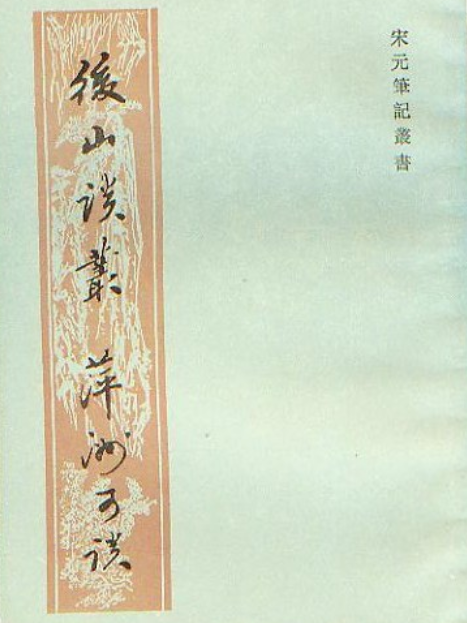 宋元筆記叢書
後山談叢 萍洲可談